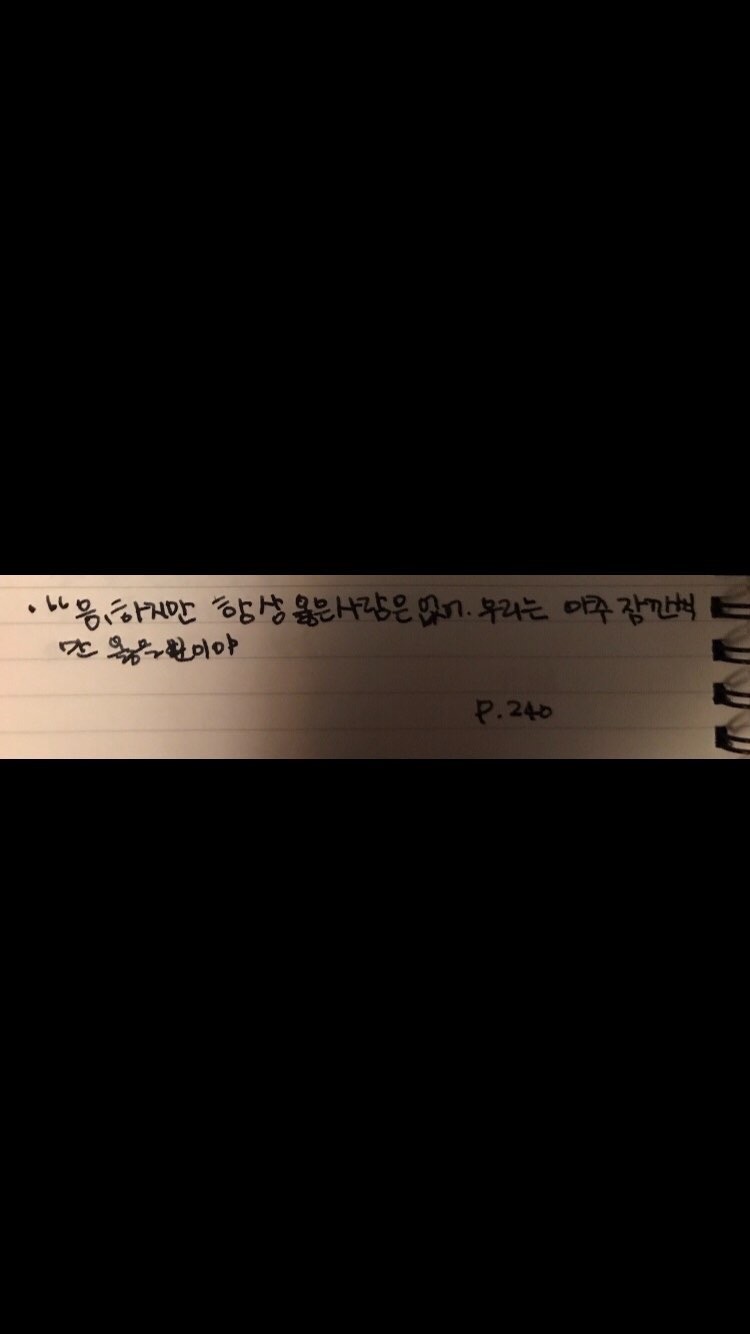 · “응, 하지만 항상 옳은 사람은 없어. 우리는 아주 잠깐씩
만 옳을 뿐이야
P.240